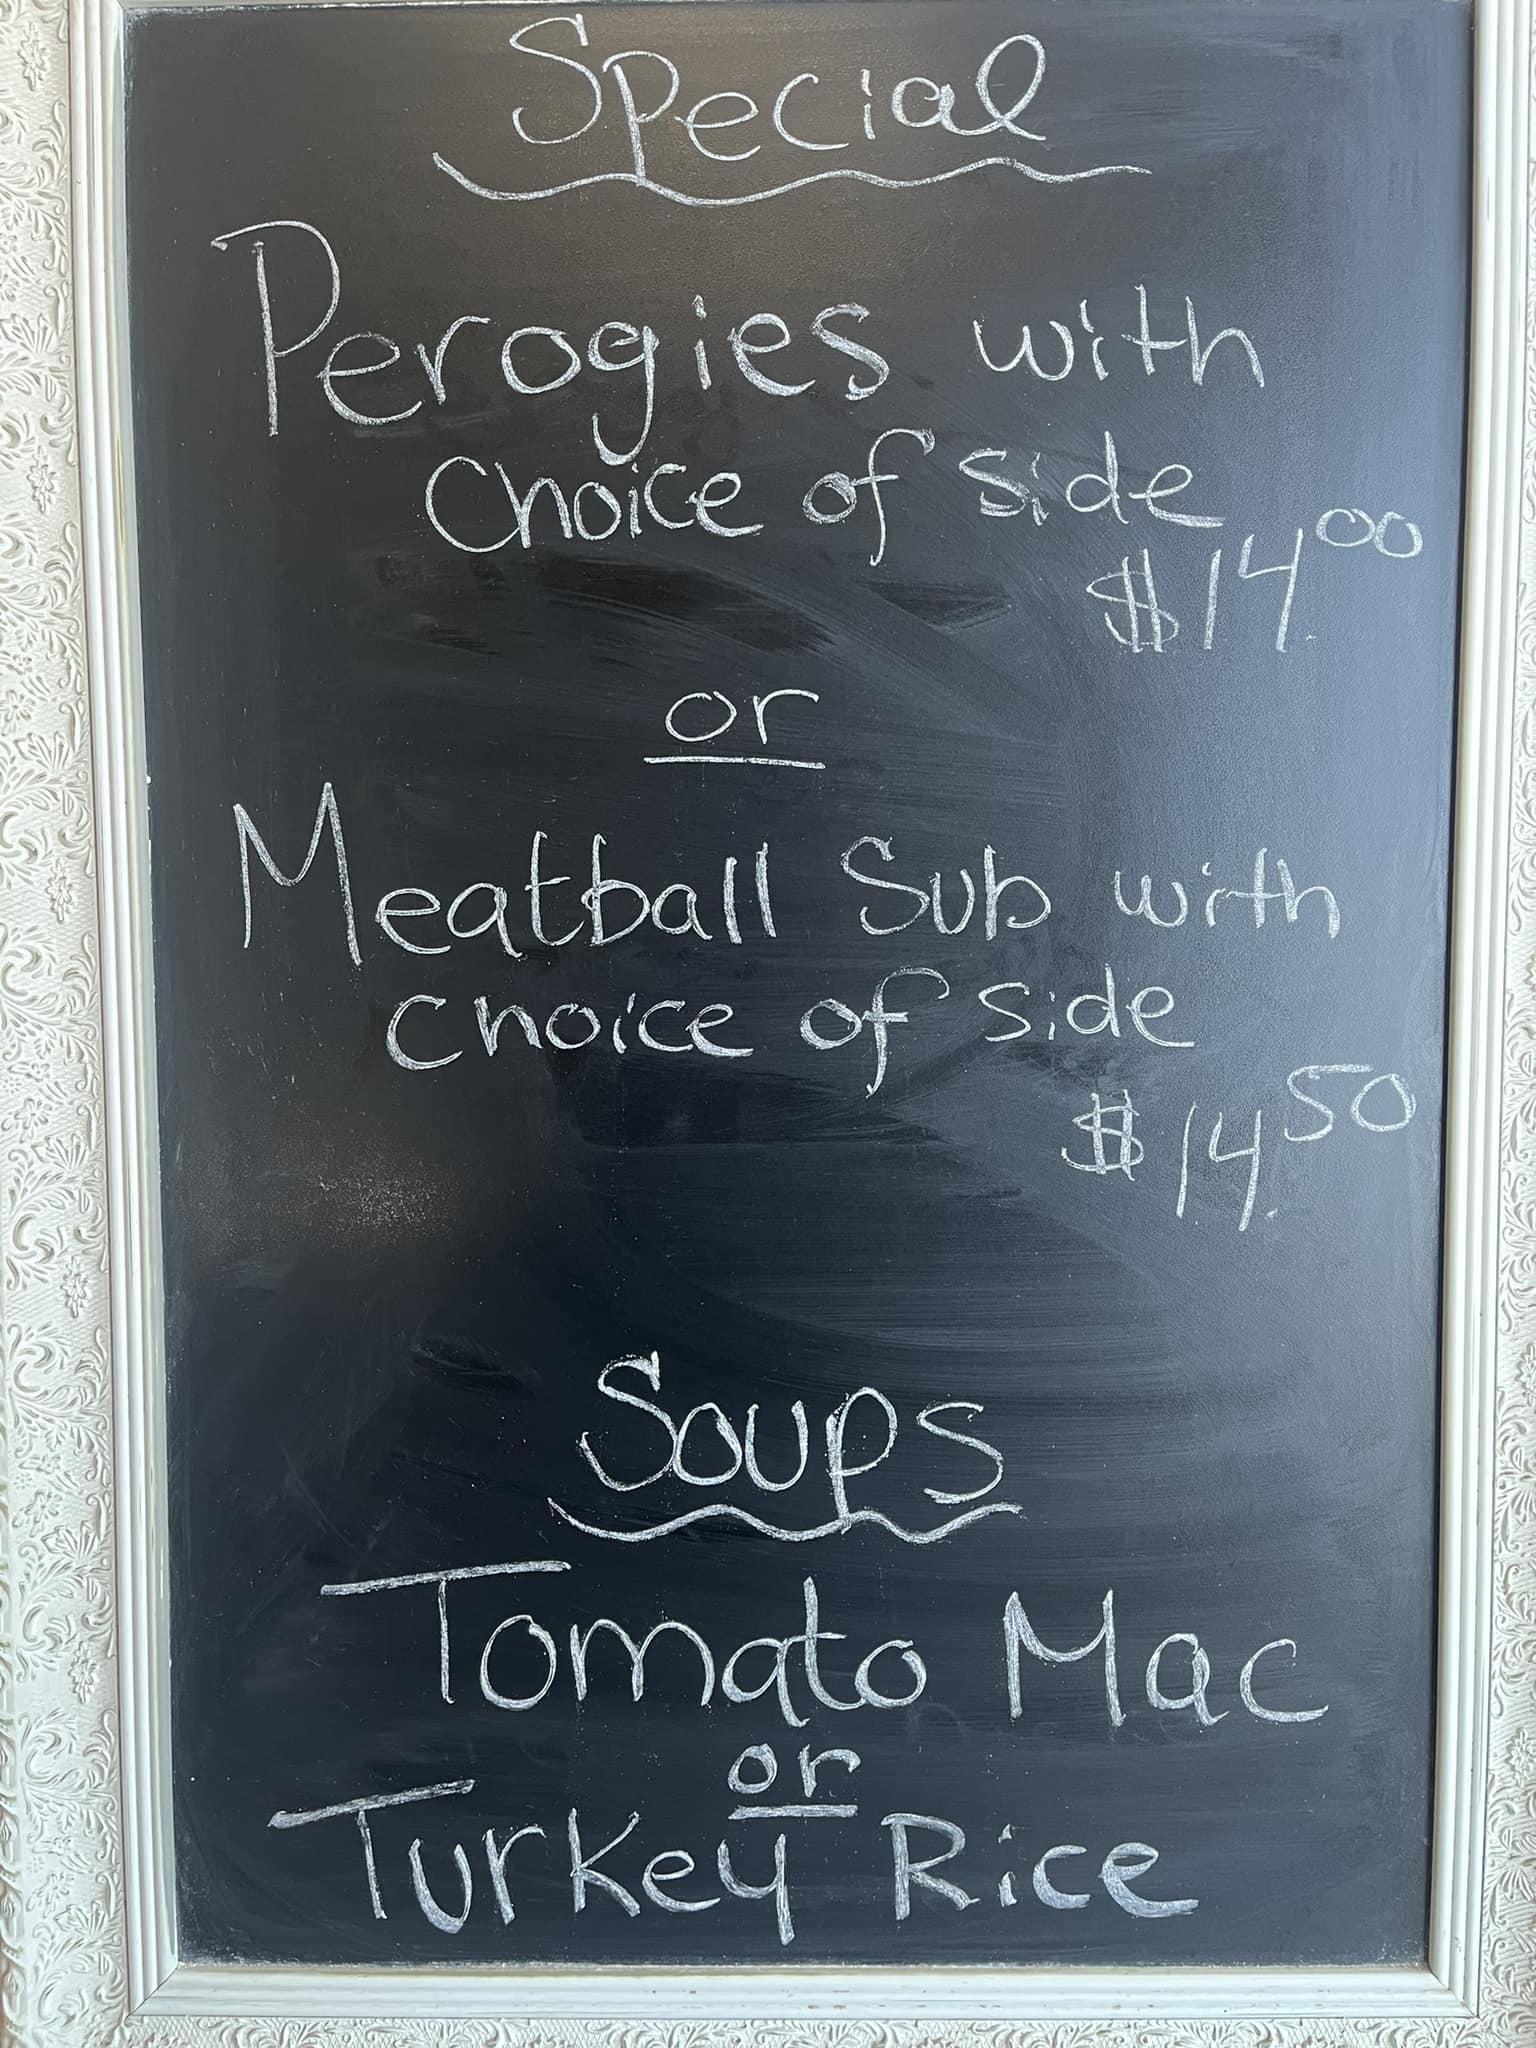 Special
Perogies with
choice of side
$14.00
or
Meatball Sub with
choice of side
$14.50
Soups
Tomato Mac
or
Turkey Rice